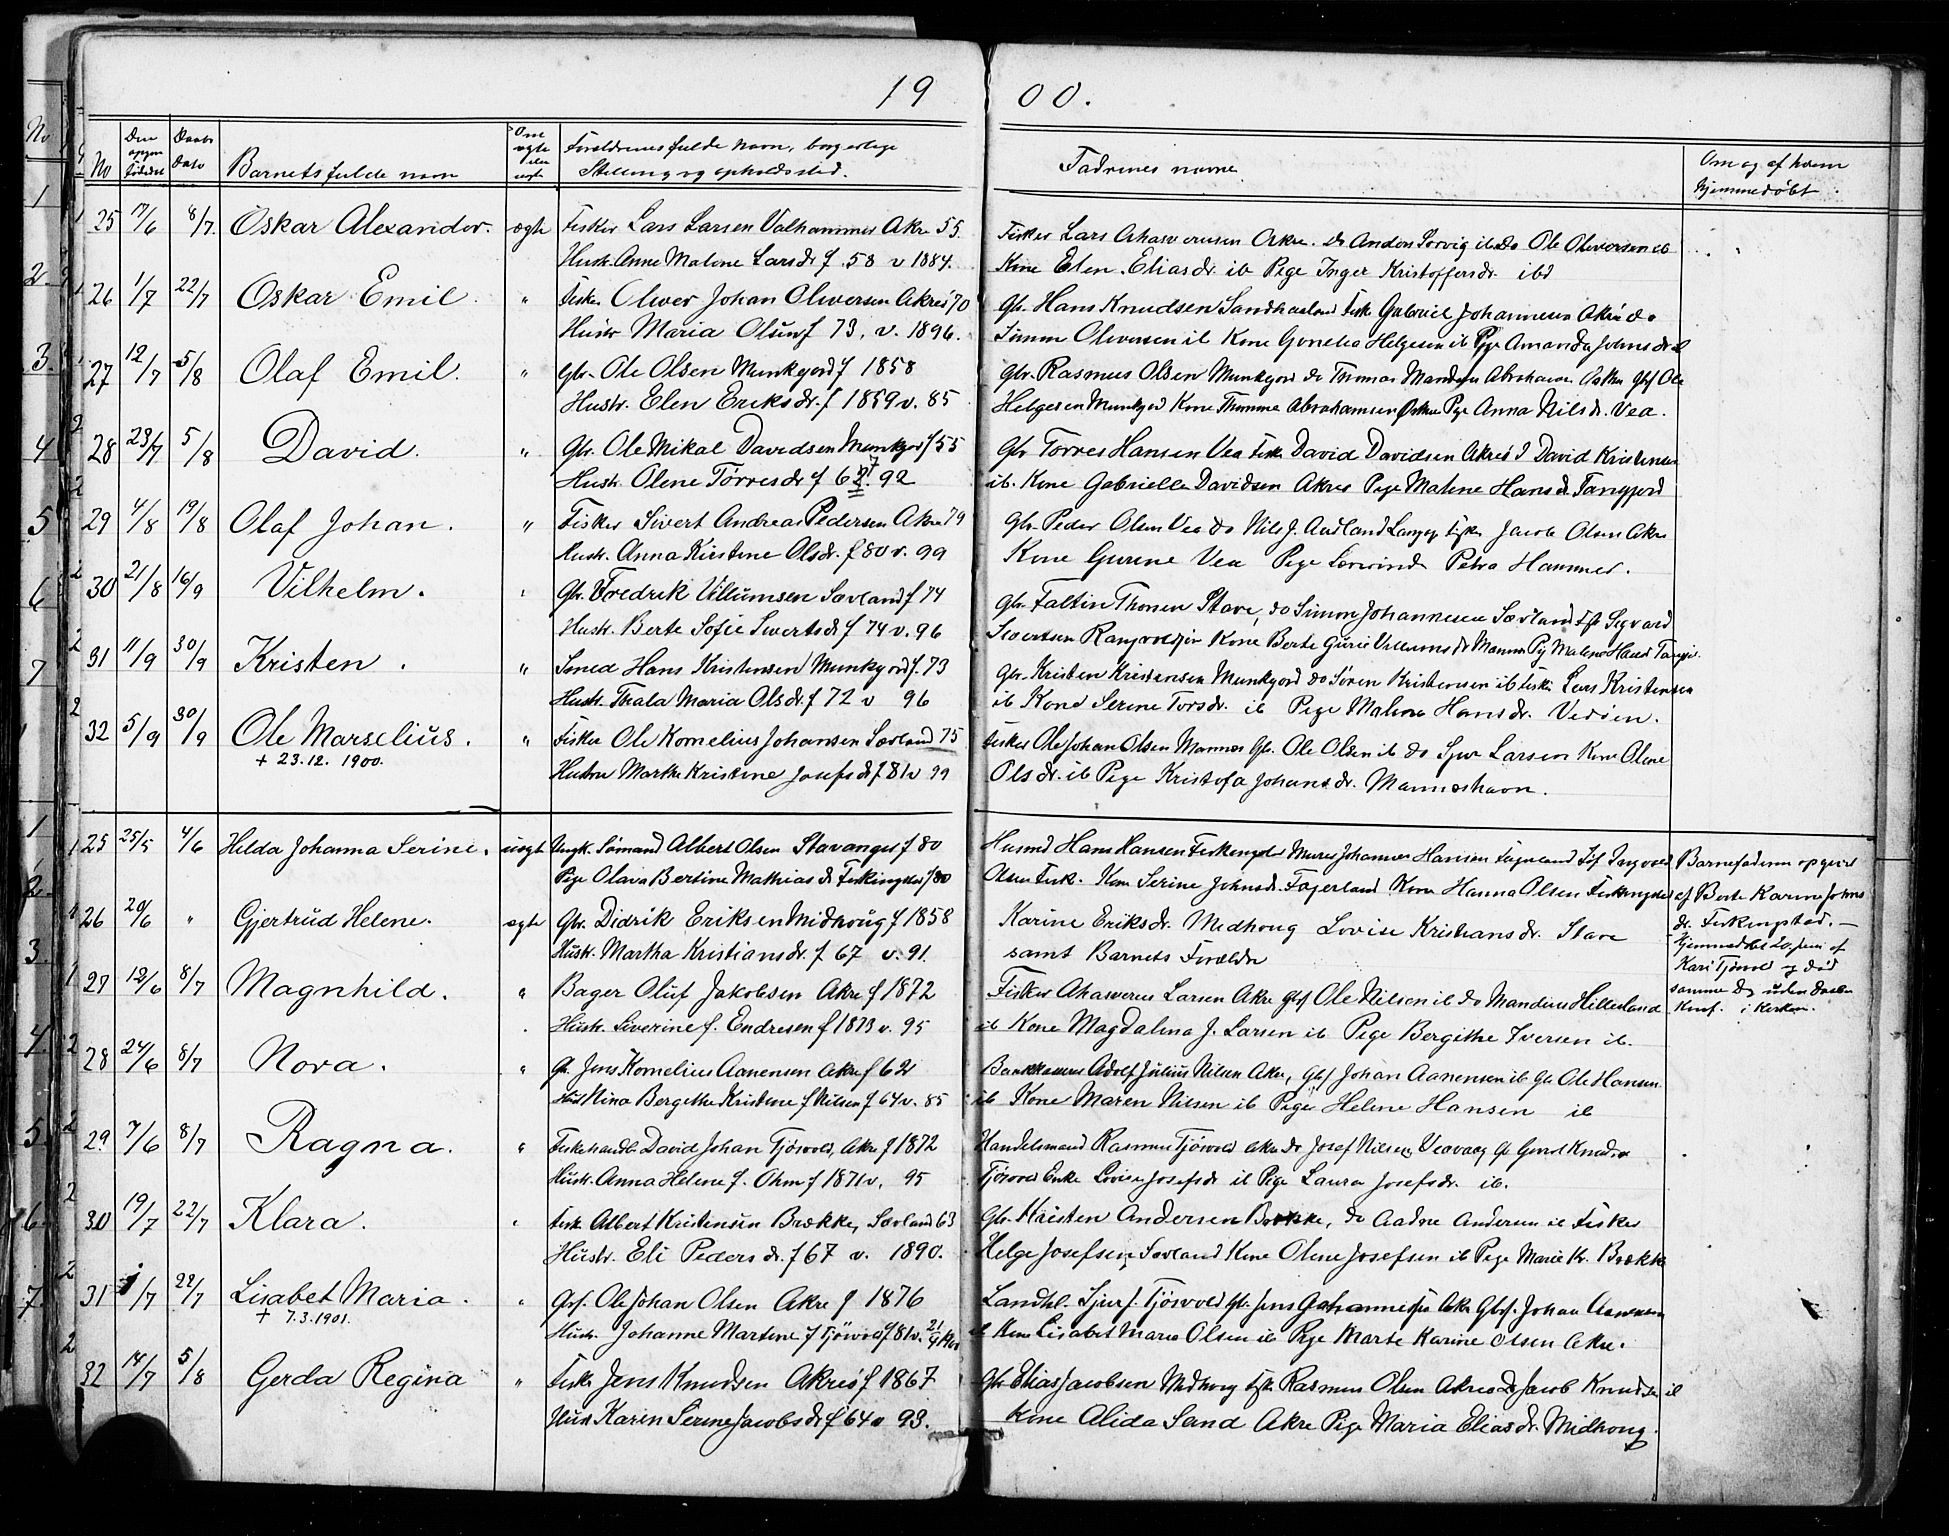 19 00.
No Den Daabs Barnets fulde navn Om ægte eller uægte Forældrenes fulde navn, borgerlige
Stilling og opholdssted.
Fadrenes navne
Om og af hvem
hjemmedøbt
25 17/6 8/7 Oskar Alexander. ægte Fisker Lars Larsen Valhammer Akre 55
Hustr. Anne Malene Larsdr f. 58 v 1884.
Fisker Lars Ahasverusen Akre. do Ole Oliversen ib
Kone Elen Eliasdr. ib Pige Inger Kristoffersdr. ibd
26 1/7 22/7 Oskar Emil. " Fisker Oliver Johan Oliversen Akre 70
Hustr Maria Olsen f 73. v. 1896.
Gbr. Hans Knudsen Sandhaaland Fisk Gabriel Johannesen Akre do
Simon Oliversen ib Kone Gunelia Helgesen ib Pige Amanda Johnsdr. ib
27 12/7 5/8 Olaf Emil. " Gbr. Ole Olsen Munkjord f 1858
Hustr. Elen Eriksdr. f 1859 v. 85
Gbr. Rasmus Olsen Munkjord do Thomas Abrahamsen Gbf Ole
Helgesen Munkjord Kone Thomine Abrahamsen Pige Anna Nilsdr. Vea.
28 23/7 5/8 David. " Gbr. Ole Mikal Davidsen Munkjord f 55
Hustr. Olene Torresdr f 62 v. 92
Gbr Torres Hansen Vea Fisk David Davidsen Akre David Kristensen
ib. Kone Gabrielle Davidsen Akre Pige Malene Hansdr. Tangjerd
29 4/8 19/8 Olaf Johan. " Fisker Sivert Andreas Pedersen Akre 79
Hustr. Anna Kirstine Olsdr. f 80 v. 99
Gbr. Peder Olsen Vea do Nils J. Aadland Fisk Jacob Olsen Akre
Kone Gurine Vea Pige Petra Hammer.
30 21/8 16/9 Vilhelm. " Gbr. Fredrik Villumsen Sævland f 74
Hustr. Berte Sofie Sivertsdr f 74 v. 96
Gbr. Faltin Thorsen Stave, do Simon Johannesen Sævland Fisk Sigvard
Sivertsen Kone Berte Gurie Villumsdr Mannes Pig Malene Hansd
31 11/9 30/9 Kristen. " Smed Hans Kristensen Munkjord f. 73
Hustr. Thala Maria Olsdr. f 72 v 96
Gbr. Kristen Kristensen Munkjord do Søren Kristensen ib Fisk Lars Kristensen
ib Kone Serine Torsdr. ib Pige Malene Hansdr. Vedøen.
32 5/9 30/9 Ole Marselius. " Fisker Ole Kornelius Johansen Sævland 75
+ 23.12. 1900.
Hustru Marthe Kristine Josefsdr f 81 v 99
Fisker Ole Johan Olsen Mannes Gbr. Ole Olsen ib do Larsen Kone Olene
Olsdr. ib Pige Kristofa Johansdr. Manneshavn.
25 25/5 4/6 Hilda Johanna Serine. uægte Ungk. Sømand Albert Olsen Stavanger f 80
Pige Olava Bertine Mathiasdr Ferkingstad f 80
Husmd Hans Hansen Ferkingstad Murer Johannes Hansen Ingvald
Olsen Ferk. Kone Serine Johnsdr. Fagerland Kone Hanna Olsen Ferkingstad
Barnefaderen opgivet
af Berte Karine Johns
dr. Ferkingstad.
26 20/6 " Gjertrud Helene. ægte Gbr. Didrik Eriksen Midhoug f 1858
Hustr. Martha Kristiansdr. f 67 v. 91.
Karine Eriksdr. Medhoug Lovise Kristiansdr. Stave
samt Barnets Forældre
hjemmedøbt 20 juni af
Kari Tjøsvol og død
samme Dag uden Daabs
Konf. i Kirken.
27 12/6 8/7 Magnhild. " Bager Oluf Jakobsen Akre f 1872
Hustr. Severine f. Endresen f 1873 v. 95
Fisker Ahasverus Larsen Akre Gbf Ole Nilsen ib do Mandius Hilleland
ib Kone Magdalina J. Larsen ib Pige Bergithe Iversen ib.
28 24/6 8/7 Nora. " Gbr. Jens Kornelius Aanensen Akre f 62
Hust Nina Bergithe Kristine f Nilsen f 64 v. 85
Adolf Julius Nilsen Akre, Gbf Johan Aanensen ib Gbr Ole Hansen
ib Kone Maren Nilsen ib Pige Helene Hansen ib
29 7/6 8/7 Ragna. " Fiskehandl. David Johan Tjøsvold, Akre f 1872
Hustr. Anna Helene f. Ohm f 1871 v. 95
Handelsmand Rasmus Tjøsvold Akre do Josef Nilsen, Veavaag
Tjøsvold Enke Lovise Josefsdr ib Pige Laura Josefsdr. ib.
30 19/7 22/7 Klara. " Fisk. Albert Kristensen Brække, Sævland 63
Hustr. Eli Pedersdr. f 67 v. 1890.
Gbr. Kristen Andersen Brekke, do Aadne Andersen ib Fisker
Helge Josefsen Sævland Kone Olene Josefsen ib Pige Marie Kr. Brække
31 1/7 22/7 Lisabet Maria. " Gbf. Ole Johan Olsen Akre f 1876
+ 7.3.1901.
Hustr. Johanne Martine f Tjøsvold f 81 v. 21/9
Landhl. Sjur J. Tjøsvold Gbr. Jens Akre Gbf. Johan Aanensen
ib Kone Lisabet Marie Olsen ib Pige Marte Karine Olsen Akre.
32 14/7 5/8 Gerda Regina " Fisk Jens Knudsen Akre f 1867
Hust Karen Serine Jacobsdr f 64 v 93.
Gbr Elias Jacobsen Midhoug Fisk Rasmus Olsen Akre do Jacob Knudsen ib
Kone Alida Sand Akre Pige Maria Eliasdr. Midhoug.